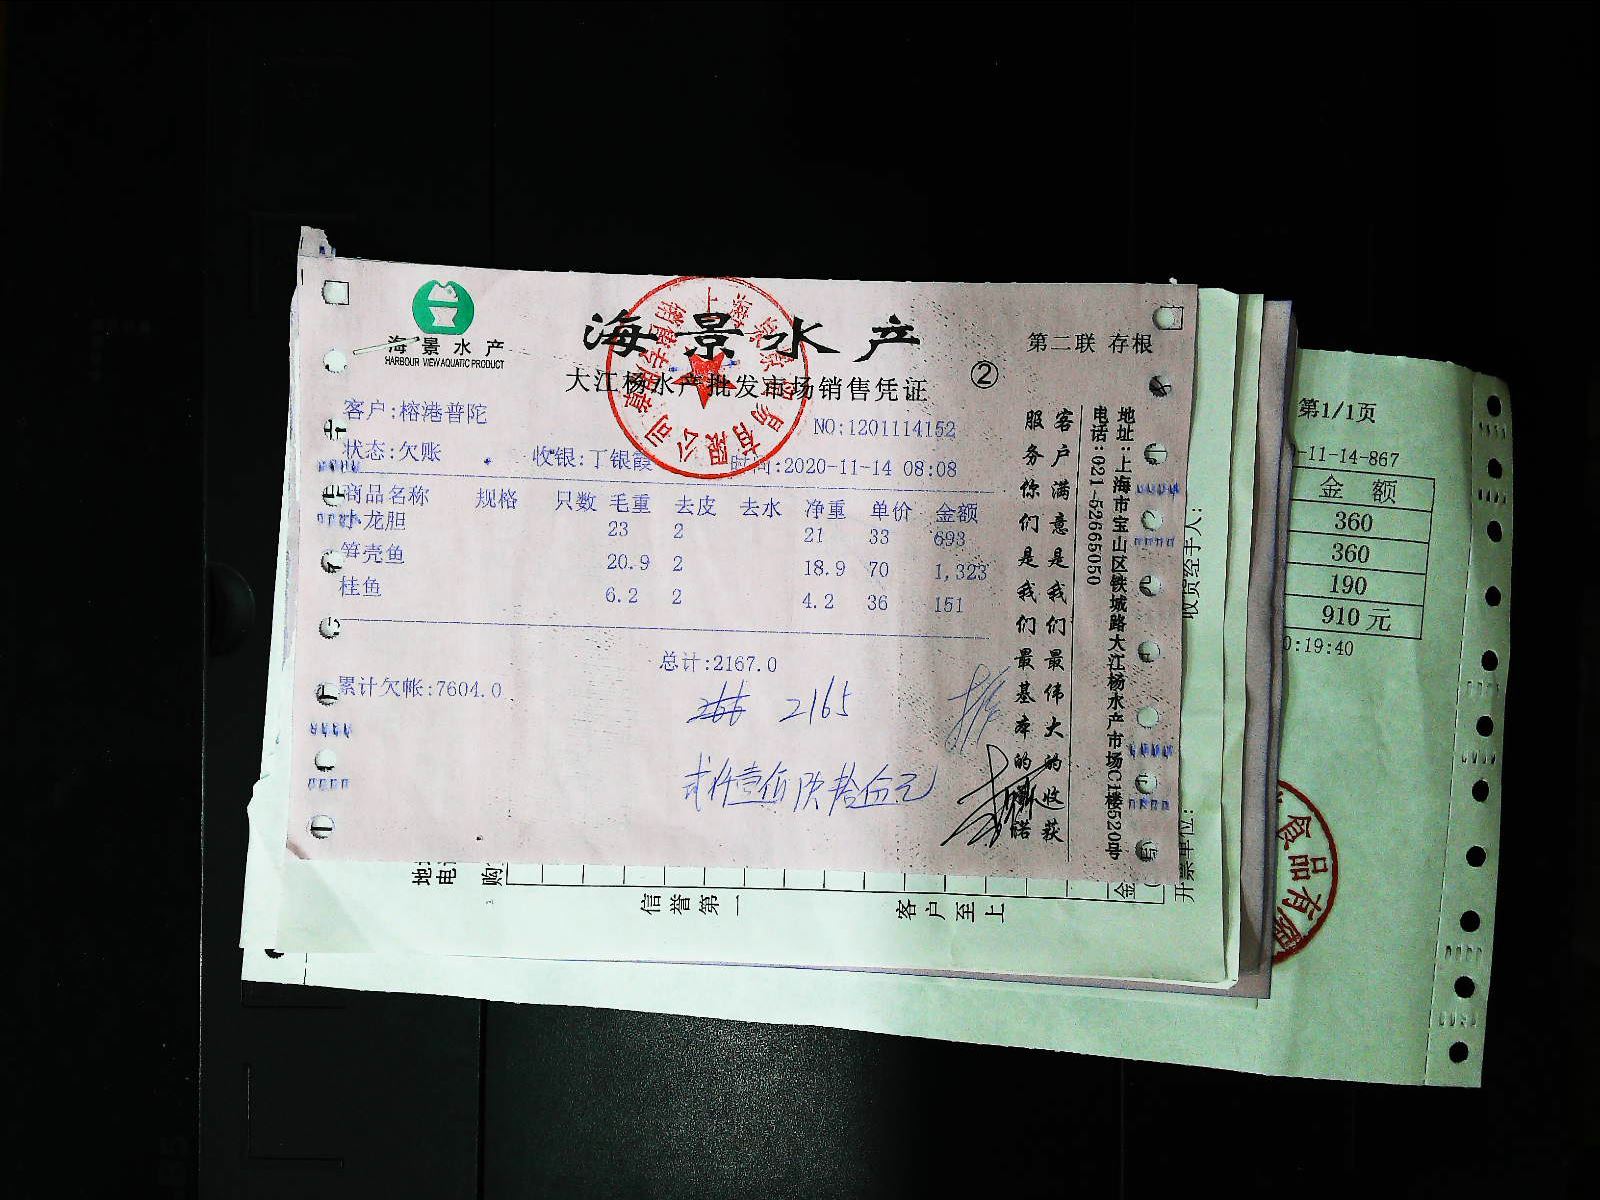 海景水产
HARBOUR VIEW AQUATIC PRODUCT
海景水产
大江杨水产批发市场销售凭证
②
第二联 存根
客户:榕港普陀
NO:1201114152
状态:欠账 收银:丁银霞 时间:2020-11-14 08:08
商品名称 规格 只数 毛重 去皮 去水 净重 单价 金额
小龙胆 23 2 21 33 693
笋壳鱼 20.9 2 18.9 70 1,323
桂鱼 6.2 2 4.2 36 151
总计:2167.0
累计欠帐:7604.0
2165
客户满意是我们最伟大的收获
服务你们是我们最基本的
地址:上海市宝山区铁城路大江杨水产市场C1楼520号
电话:021-52665050
上海
贸易有限公司
销售专用章
收货经手人:
开票单位:
地
电
购
金
信誉第一
客户至上
第1/1页
-11-14-867
金额
360
360
190
910元
0:19:40
食品有